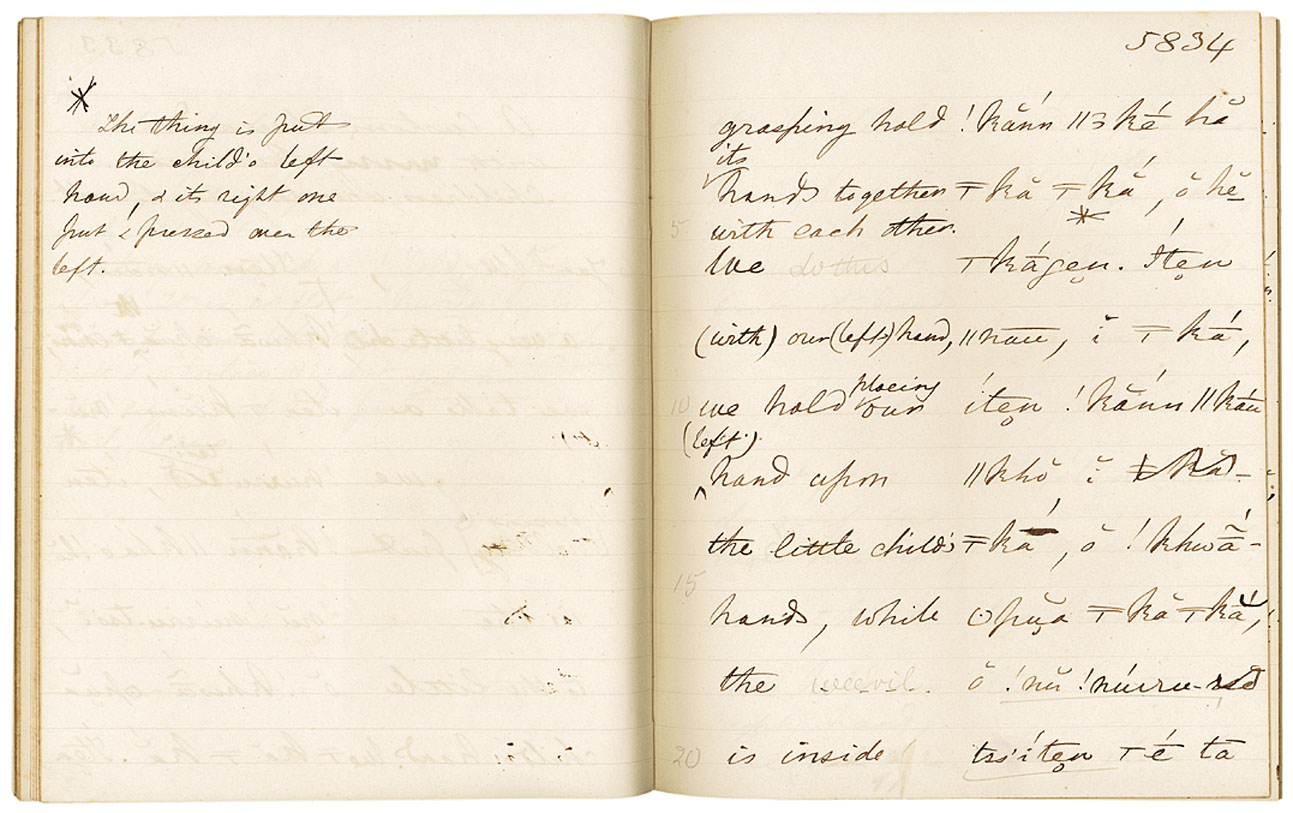 *
The thing is put
into the child's left
hand, & its right one
put & pressed over the
left.
5834
grasping hold !kắnn ||ɜ ké hă
its
hands together ǂkă ǂkắ, ŏ hĕ
*
5 with each other.
We do this ǂkágen̥. Íten̥
(with) our (left) hand, ||nau, ĭ ǂká,
placing
10 we hold our íten̥ !kắnn ||káu
(left)
hand upon ||khŏ, ĭ
the little child's ǂká, ŏ !khwã-
15
hands, while ʘpua ǂkă ǂkắ,
the weevil ŏ !nŭ !núïru-
20 is inside ǂé ta